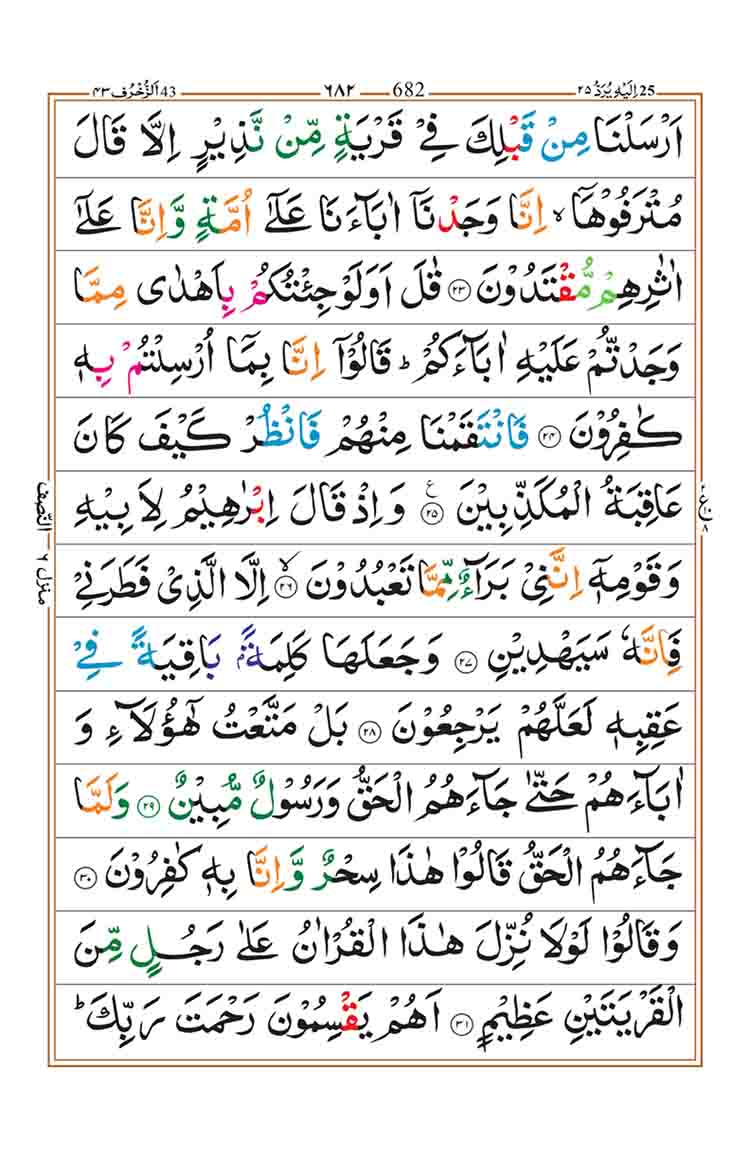 25 اِلَيْهِ يُرَدُّ ٢٥ 682 ٦٨٢ 43 اَلزُّخْرُف ٤٣
اَرْسَلْنَا مِنْ قَبْلِكَ فِيْ قَرْيَةٍ مِّنْ نَّذِيْرٍ اِلَّا قَالَ
مُتْرَفُوْهَاۤ ۙ اِنَّا وَجَدْنَاۤ اٰبَآءَنَا عَلٰۤى اُمَّةٍ وَّاِنَّا عَلٰۤى
اٰثٰرِهِمْ مُّقْتَدُوْنَ ۝٢٣ قٰلَ اَوَلَوْ جِئْتُكُمْ بِاَهْدٰى مِمَّا
وَجَدْتُّمْ عَلَيْهِ اٰبَآءَكُمْ ؕ قَالُوْۤا اِنَّا بِمَاۤ اُرْسِلْتُمْ بِهٖ
كٰفِرُوْنَ ۝٢٤ فَانْتَقَمْنَا مِنْهُمْ فَانْظُرْ كَيْفَ كَانَ
عَاقِبَةُ الْمُكَذِّبِيْنَ ۝٢٥ ع وَاِذْ قَالَ اِبْرٰهِيْمُ لِاَبِيْهِ
وَقَوْمِهٖۤ اِنَّنِيْ بَرَآءٌ مِّمَّا تَعْبُدُوْنَ ۝٢٦ ۙ اِلَّا الَّذِيْ فَطَرَنِيْ
فَاِنَّهٗ سَيَهْدِيْنِ ۝٢٧ وَجَعَلَهَا كَلِمَةًۢ بَاقِيَةً فِيْ
عَقِبِهٖ لَعَلَّهُمْ يَرْجِعُوْنَ ۝٢٨ بَلْ مَتَّعْتُ هٰۤؤُلَآءِ وَ
اٰبَآءَهُمْ حَتّٰى جَآءَهُمُ الْحَقُّ وَرَسُوْلٌ مُّبِيْنٌ ۝٢٩ وَلَمَّا
جَآءَهُمُ الْحَقُّ قَالُوْا هٰذَا سِحْرٌ وَّاِنَّا بِهٖ كٰفِرُوْنَ ۝٣٠
وَقَالُوْا لَوْلَا نُزِّلَ هٰذَا الْقُرْاٰنُ عَلٰى رَجُلٍ مِّنَ
الْقَرْيَتَيْنِ عَظِيْمٍ ۝٣١ اَهُمْ يَقْسِمُوْنَ رَحْمَتَ رَبِّكَ ؕ
النّصف
منزل ٦